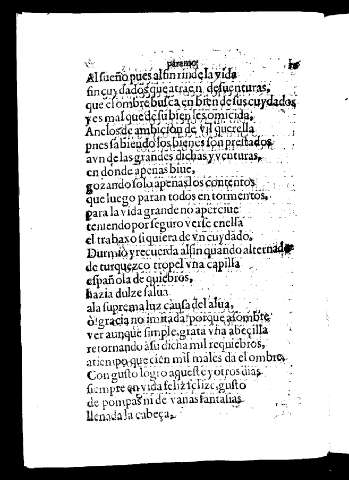 paramo,
Al sueño pues al fin rinde la vida
sin cuydados que atraen desventuras,
que el ombre busca en bien de sus cuydados
y es mas que de su bien ser omicida,
Anelos de ambicion de vil querella
pues sabiendo los bienes son prestados
avn de las grandes dichas y venturas,
en donde apenas biue,
gozando solo apenas los contentos
que luego paran todos en tormentos,
para la vida grande no aperciue
teniendo por seguro verse enella
el trabaxo si quiera de vn cuydado,
Durmio y recuerda alfin quando alternado
de turquezco tropel vna capilla
española de quiebros,
hazia dulze salua
ala suprema luz causa del alua,
o gracia no imitada porque asombre
ver aunque simple, grata vna abecilla
retornando a su dicha mil requiebros,
a tiempo que cien mil males da el ombre,
Con gusto logro aqueste y otros dias
siempre en vida feliz felize, gusto
de pompas ni de vanas fantasias
llenada la cabeça,